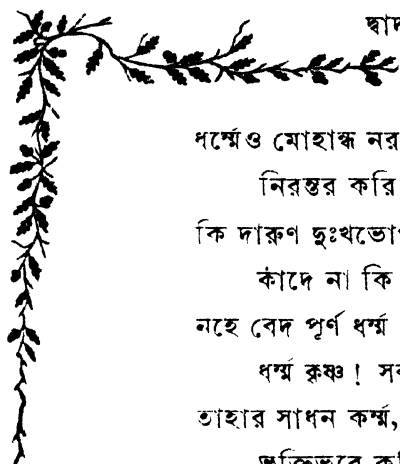 দ্বাদ
ধর্ম্মেও মোহান্ধ নর
নিরন্তর করি
কি দারুণ দুঃখভোগ
কাঁদে না কি
নহে বেদ পূর্ণ ধর্ম্ম
ধর্ম্ম কৃষ্ণ ! সব
তাহার সাধন কর্ম্ম,